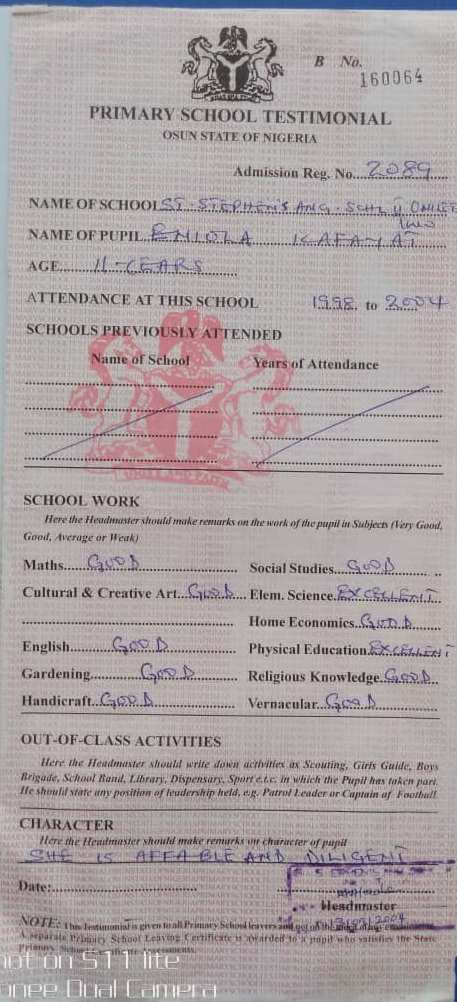 B No.
160064
PRIMARY SCHOOL TESTIMONIAL
OSUN STATE OF NIGERIA
Admission Reg. No. 2089
NAME OF SCHOOL ST. STEPHEN'S ANG. SCHL II
NAME OF PUPIL ENIOLA KAFAYAT
AGE 11-YEARS
ATTENDANCE AT THIS SCHOOL 1998 to 2004
SCHOOLS PREVIOUSLY ATTENDED
Name of School Years of Attendance
SCHOOL WORK
Here the Headmaster should make remarks on the work of the pupil in Subjects (Very Good,
Good, Average or Weak)
Maths GOOD Social Studies GOOD
Cultural & Creative Art GOOD Elem. Science EXCELLENT
Home Economics GOOD
English GOOD Physical Education EXCELLENT
Gardening GOOD Religious Knowledge GOOD
Handicraft GOOD Vernacular GOOD
OUT-OF-CLASS ACTIVITIES
Here the Headmaster should write down activities as Scouting, Girls Guide, Boys
Brigade, School Band, Library, Dispensary, Sport e.t.c. in which the Pupil has taken part.
He should state any position of leadership held, e.g. Patrol Leader or Captain of Football.
CHARACTER
Here the Headmaster should make remarks on character of pupil
SHE IS AFFABLE AND DILIGENT
Date:
Headmaster
NOTE: This Testimonial is given to all Primary School leavers and not on the
A separate Primary School Leaving Certificate is awarded to a pupil who satisfies the State
Primary Assessments.
hot on S11 lite
onee Dual Camera